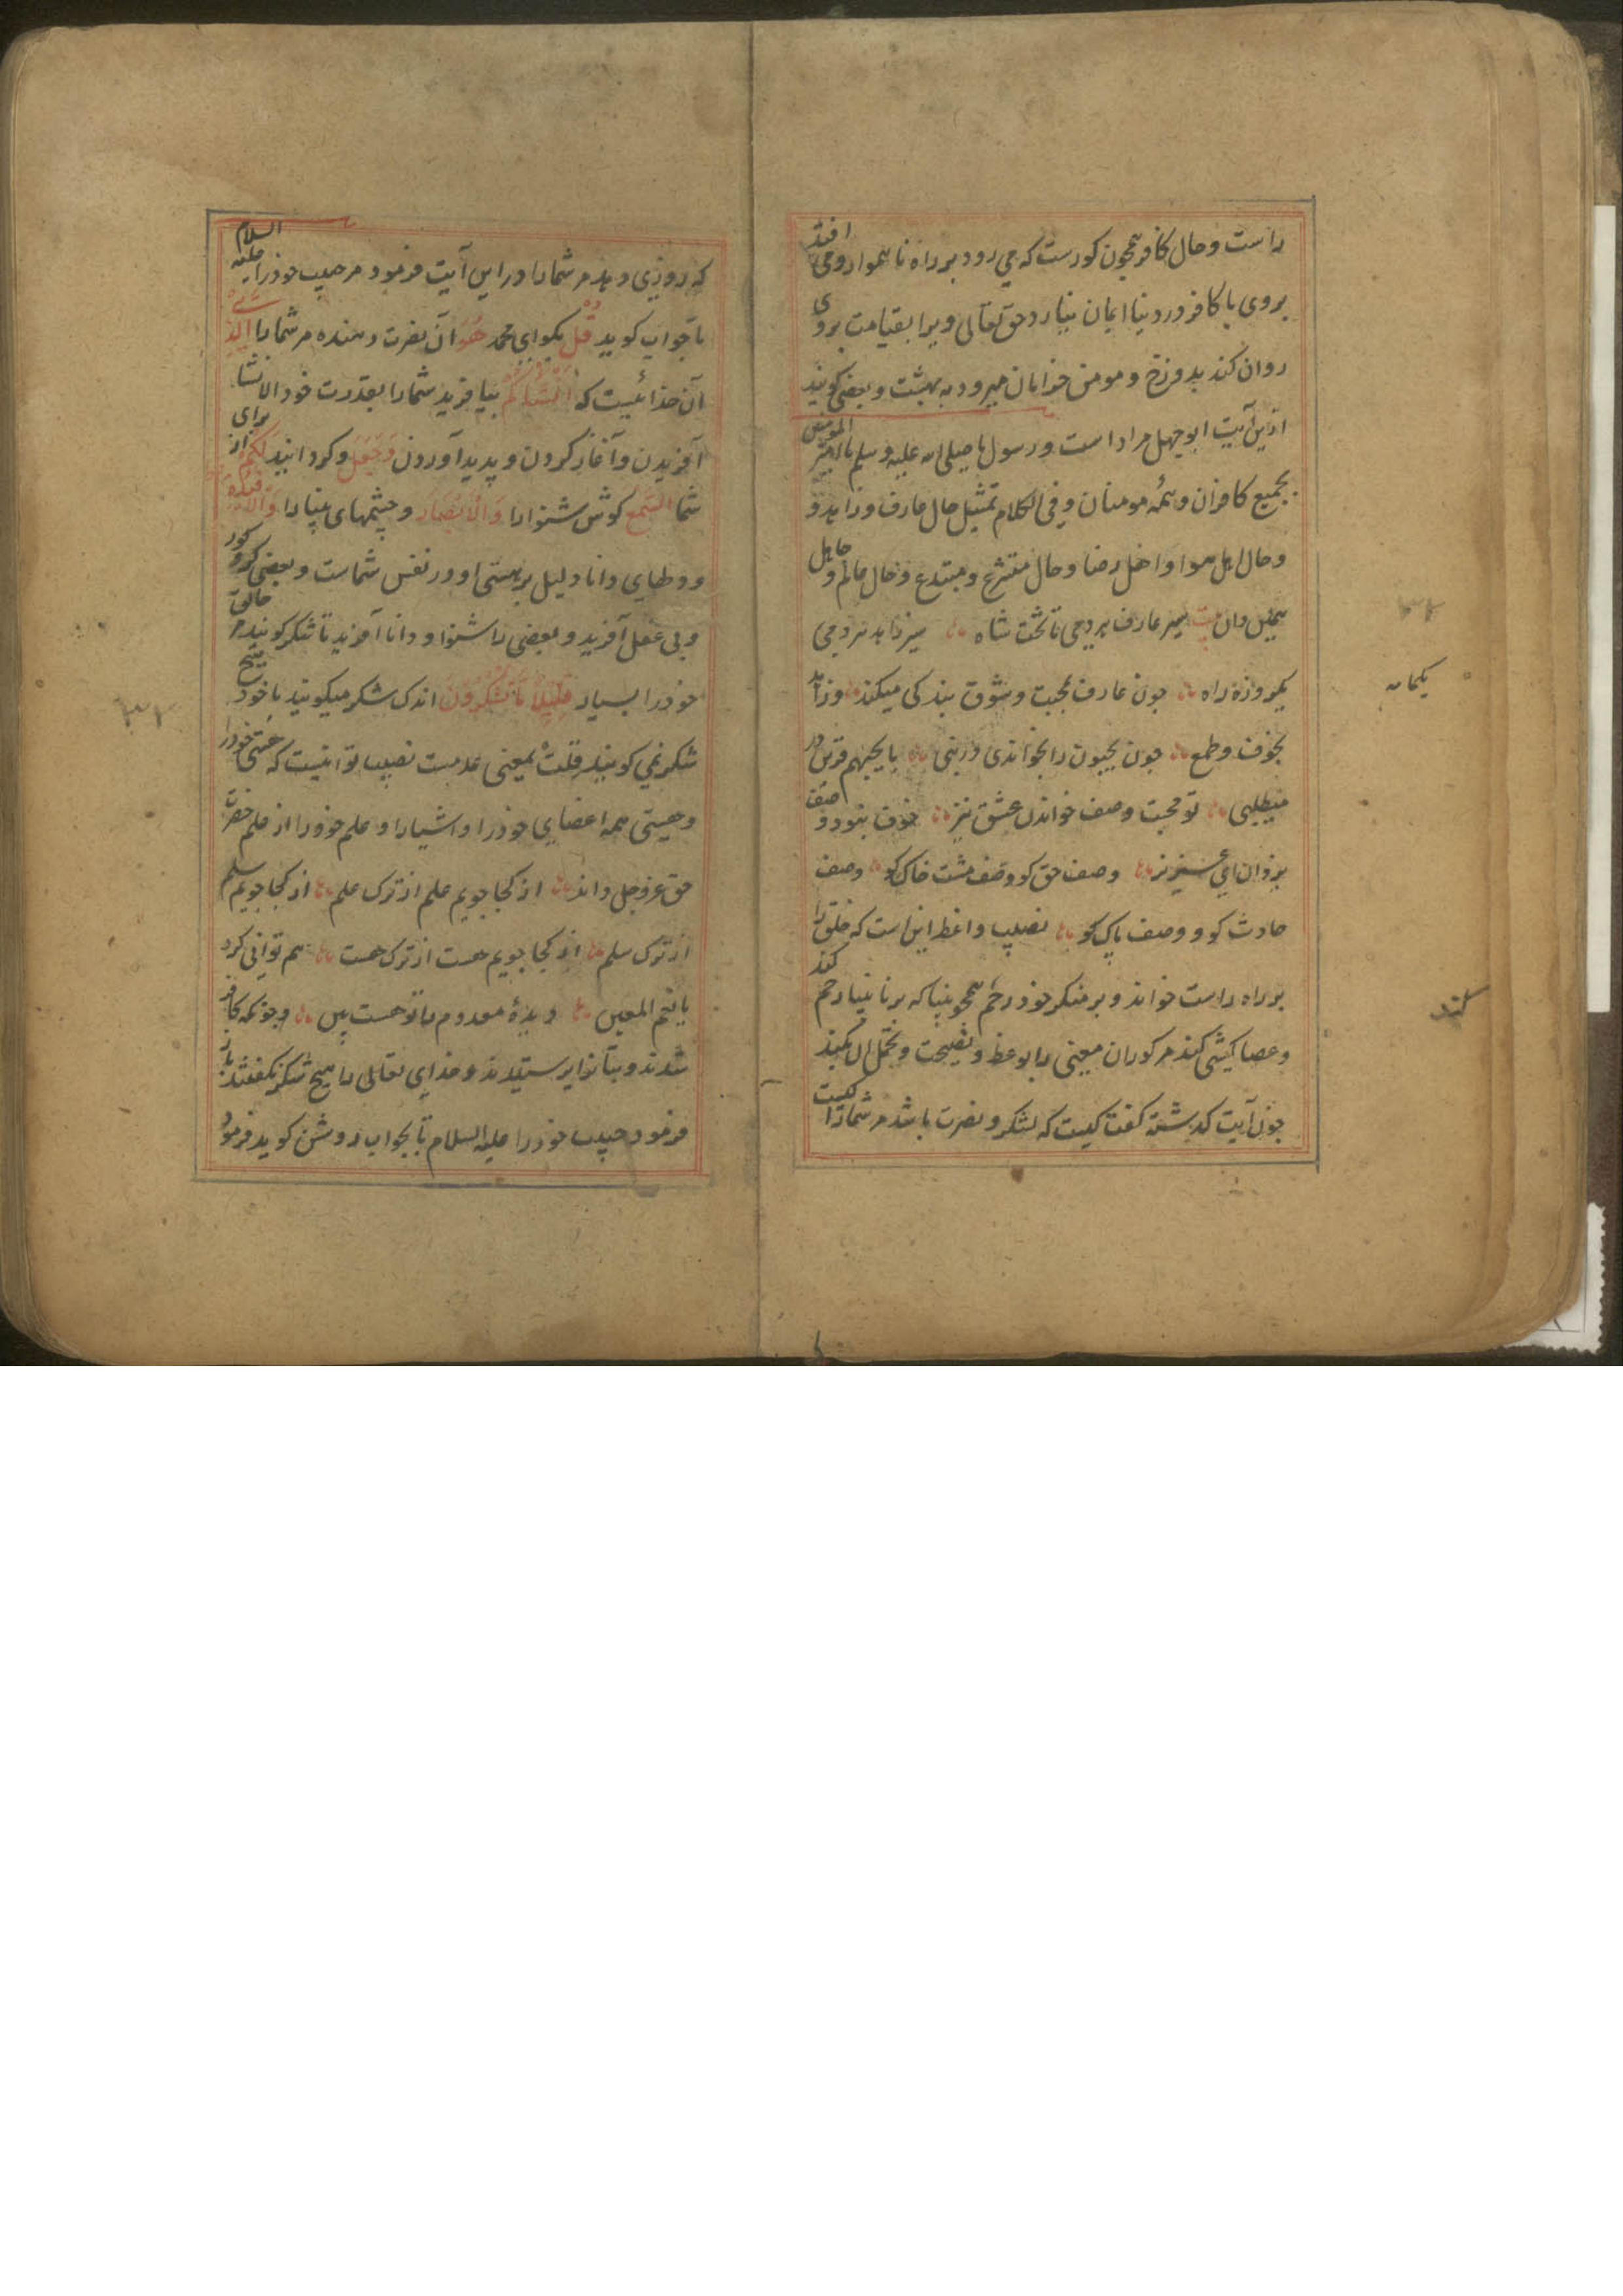 راست و حال کافر همچون کورست که می رود بر راه ناهموار و می افتد
بروی یا کافر در دنیا ایمان نیارد حق تعالی ویرا بقیامت بروی
روان کند بدوزخ و مومن خرامان میرود به بهشت و بعضی کویند
ازین آیت ابوجهل مراد است و رسول ما صلی الله علیه وسلم
بجمیع کافران و همه مومنان و فی الکلام تمثیل حال عارف و زاهد و
و حال اهل هوا و اهل رضا و حال متشرع و مبتدع و حال عالم و جاهل
همچنین دان بیت سیر عارف هر دمی تا تخت شاه سیر زاهد هر دمی
یکروزه راه چون عارف بمحبت و شوق بندکی میکند و زاهد
بخوف و طمع چون یحبون را بخواندی در نبی با یحبهم قرین در
میطلبی تو محبت وصف خوان عشق نیز خوف نبود وصف
یزدان ای عزیز وصف حق کو وصف مشت خاک کو وصف
حادث کو و وصف پاک کو نصیب واعظ این است که خلق را
بر راه راست خواند و بر منکر خود رحم همچو بینا که بر نابینا رحم کند
و عصا کشی کند مر کوران معینی را بوعظ و نصیحت و تحمل آن بکند
چون آیت کذشته کفت کیست که لشکر و نصرت باشد مر شمارا کیست
یکمانه
کنند
که روزی دهد مر شمارا در این آیت فرمود مر حبیب خودرا علیه السلام
تا جواب کوید قل بکو ای محمد هو آن نصرت دهنده مر شمارا الذی
آن خدائیست که انشاکم بیافرید شمارا بقدرت خود الانشا
آفریدن و آغاز کردن و پدید آوردن و جعل و کردانید لکم از برای
شما السمع کوش شنوارا والابصار و چشمهای بینارا والافئدة
و دلهای دانا دلیل بر هستی او در نفس شماست و بعضی کر و کور
و بی عقل آفرید و بعضی را شنوا و دانا آفرید تا شکر کویند مر خالق
خودرا بسیار قلیلا ما تشکرون اندک شکر میکویند یا خود هیچ
شکر نمی کویند قلت بمعنی عدمست نصیب تو اینست که هستی خودرا
و هستی همه اعضای خودرا و اشیارا و علم خودرا از علم حضرت
حق عز وجل داند از کجا جویم علم از ترک علم از کجا جویم سلم
از ترک سلم از کجا جویم هست از ترک هست هم توانی کرد
یا نعم المعین دیدهٔ معدوم را تو هست بین و چونکه کافر
شدند و بتانرا پرستیدند و خدای تعالی را هیچ شکر نکفتند باز
فرمود حبیب خودرا علیه السلام تا بجواب روشن کوید فرمود